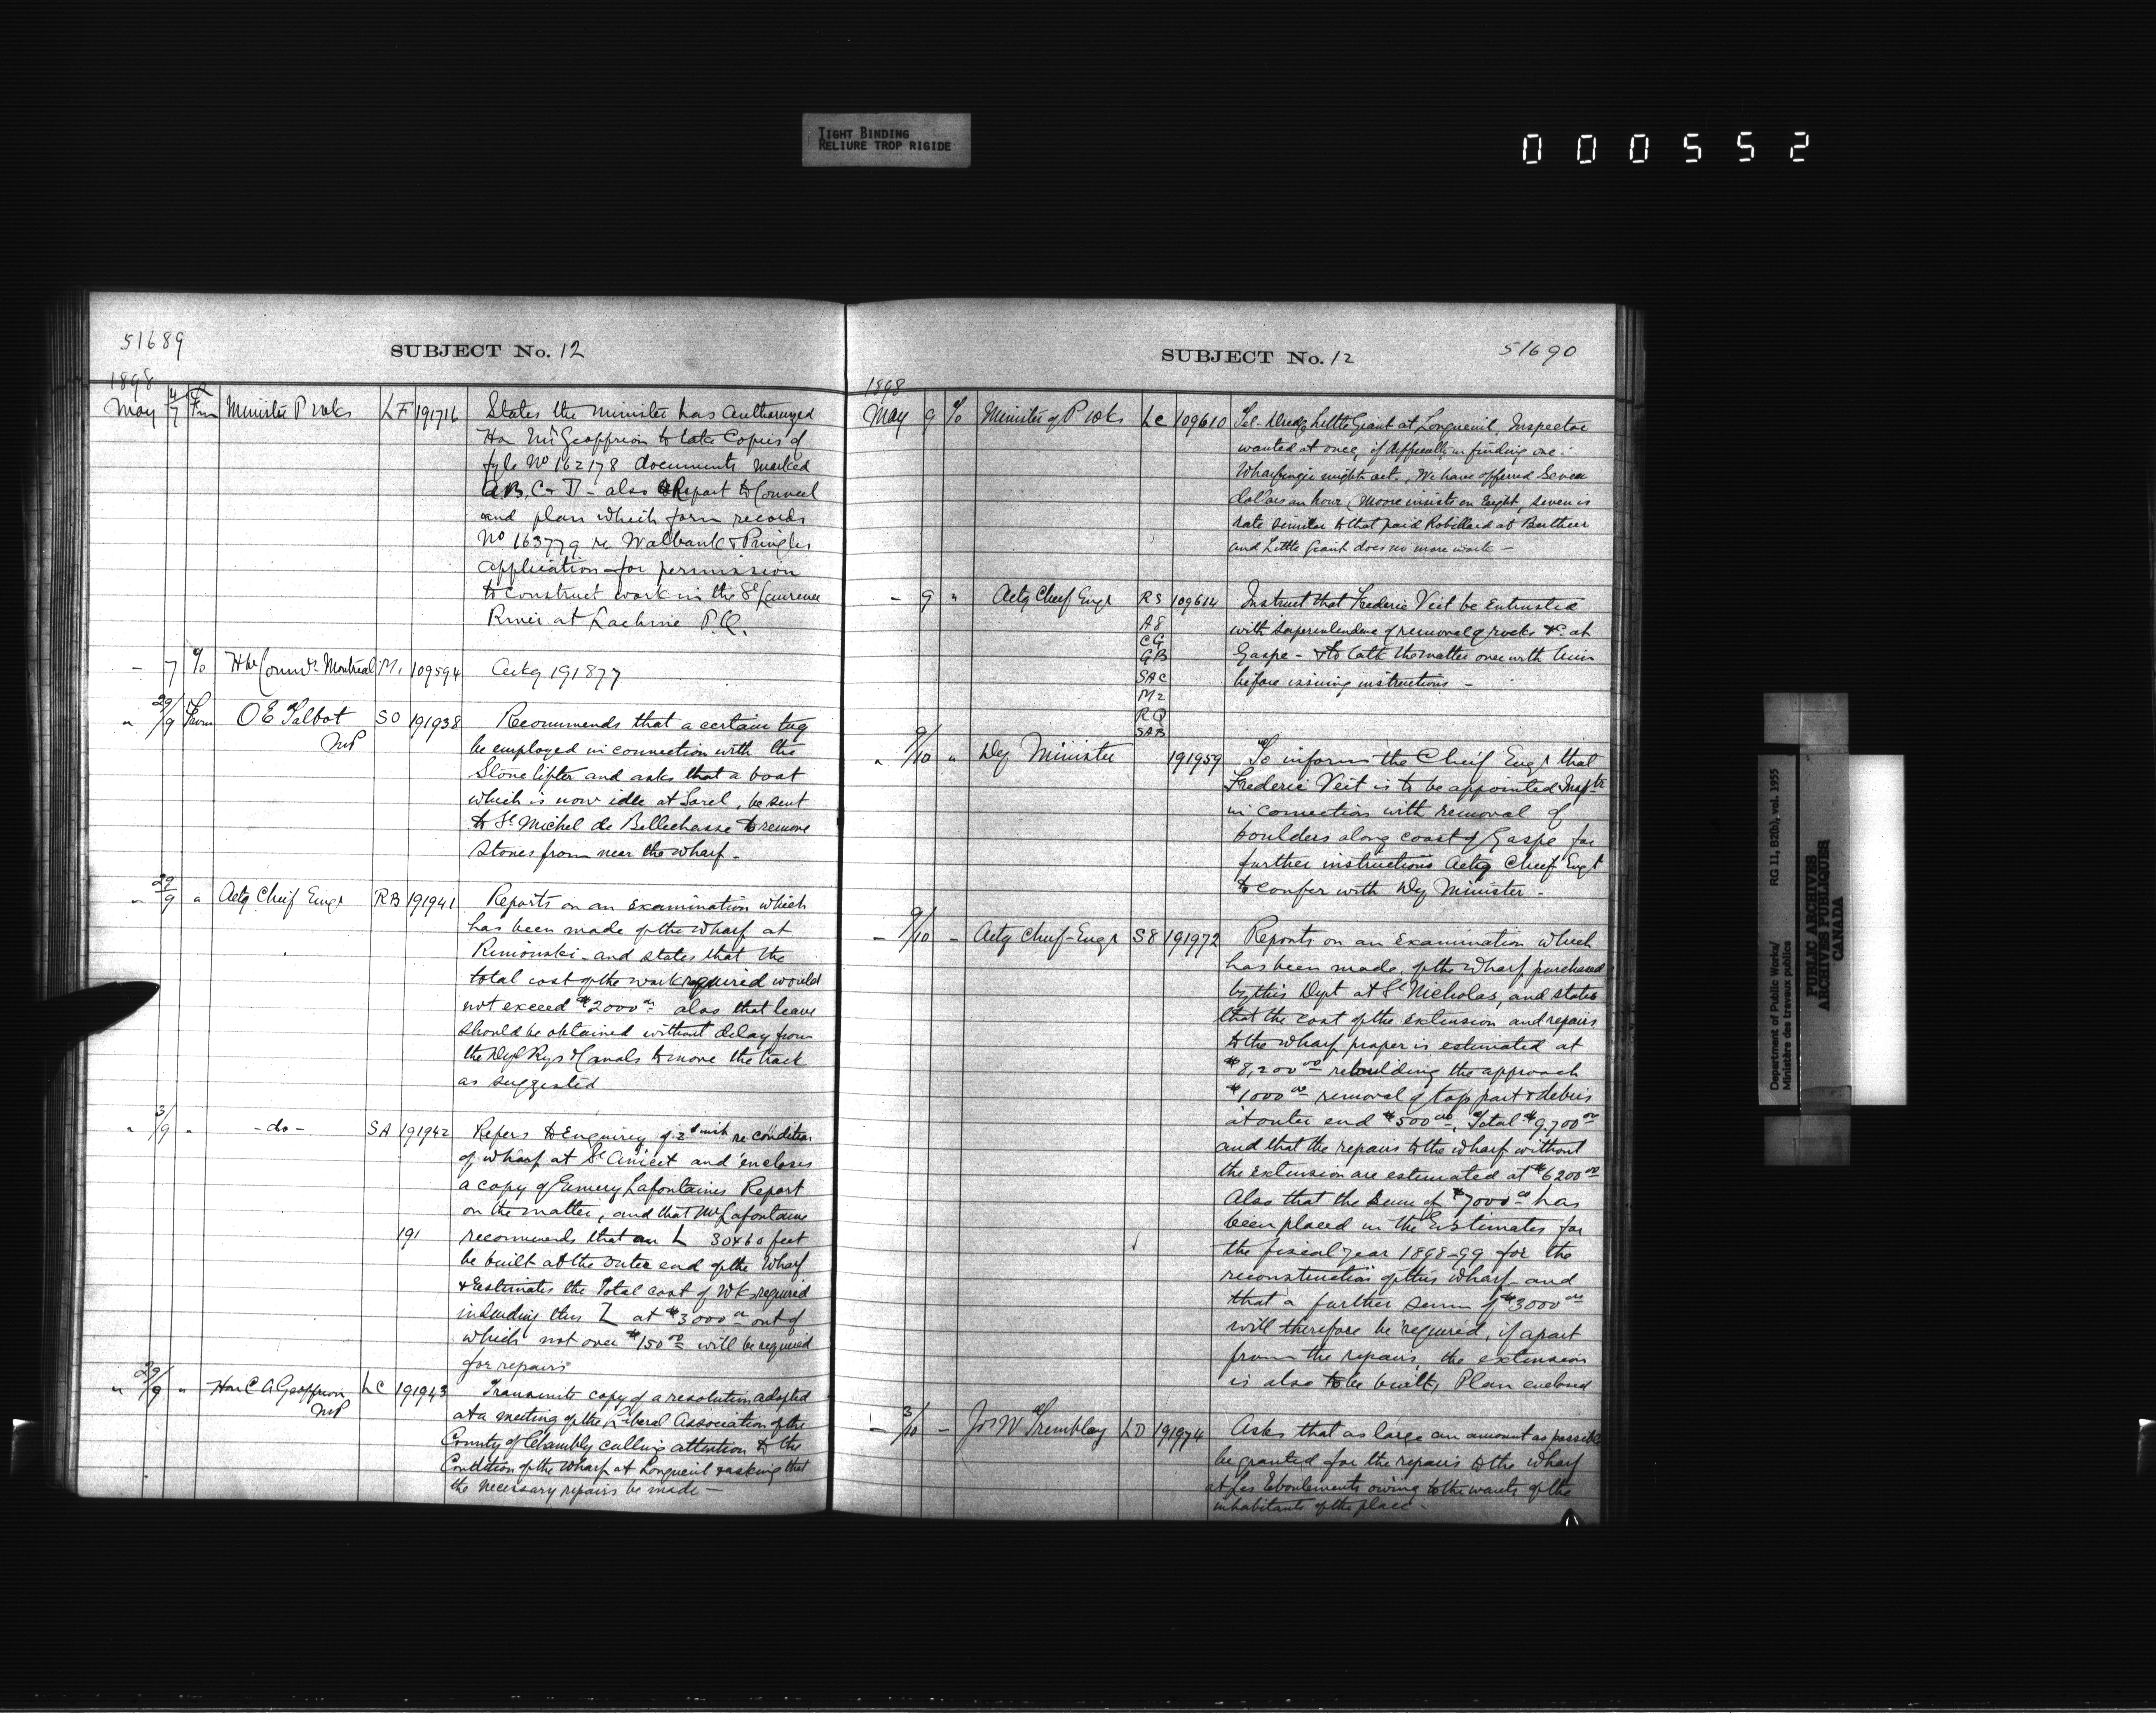 TIGHT BINDING
RELIURE TROP RIGIDE
000552
51689
SUBJECT No. 12
1898
May 4/7 Frm Minister P Wks LF 191716 States the Minister has authorized
Hon Mr Geoffrion to take Copies of
fyle No 162178 documents marked
A.B.C & D - also Report to Council
and plan which form records
No 163779 re Walbank & Pringles
application for permission
to construct work in the St Laurence
River at Lachine P.Q.
- 7 To Hbr Commrs Montreal M1 109594 Actg 191877
" 29/9 From O E Talbot SO 191938 Recommends that a certain tug
MP be employed in connection with the
Stone lifter and asks that a boat
which is now idle at Sorel, be sent
to St Michel de Bellechasse to remove
stones from near the wharf -
" 29/9 " Actg Cheif Engr RB 191941 Reports on an examination which
has been made of the wharf at
Rimouski - and states that the
total cost of the work required would
not exceed $2000 00 also that leave
should be obtained without delay from
the Dept Rys & Canals to move the track
as suggested
" 3/9 " - do - SA 191942 Refers to Enquirey of 2d inst re condition
of wharf at St Anicet and encloses
a copy of Emery Lafontaines Report
on the matter, and that Mr Lafontaine
191 recommends that an L 30x60 feet
be built at the outer end of the wharf
& Estimates the Total cost of Wk required
including this L at $3000 00 out of
which not over $150 00 will be required
for repairs
" 29/9 " Hon C A Geoffrion LC 191943 Transmits copy of a resolution adopted
MP at a meeting of the Liberal Association of the
County of Chambly calling attention to the
Condition of the wharf at Longueuil & asking that
the necessary repairs be made -
SUBJECT No. 12
51690
1898
May 9 To Minister of P Wks LC 109610 Tel - Dredge Little Giant at Longueuil, Inspector
wanted at once, if difficulty in finding one -
Wharfinger might act. We have offered Seven
dollars an hour, Moore insists on Eight, seven is
rate similar to that paid Robillard at Berthier
and Little Giant does no more work -
- 9 " Actg Cheif Engr RS 109614 Instruct that Frederic Veit be entrusted
A8 with superintendence of removal of rocks &c. at
CG
GB Gaspe - & to talk the matter over with him
SAC before issuing instructions -
M2
RQ
SAB
" 9/10 " Dy Minister 191959 To inform the Cheif Engr that
Frederic Veit is to be appointed Insptr
in connection with removal of
boulders along coast of Gaspe for
further instructions Actg Cheif Engr
to confer with Dy Minister -
- 9/10 - Actg Cheif-Engr S8 191972 Reports on an Examination which
has been made of the wharf purchased
by this Dept at St Nicholas, and states
that the cost of the extension and repairs
to the wharf proper is estimated at
$8,200 00 rebuilding the approach
$1000 00 removal of top part & debris
at outer end $500 00, Total $9,700 00
and that the repairs to the wharf without
the extension are estimated at $6200 00
Also that the sum of $7000 00 has
been placed in the Estimates for
the fiscal year 1898-99 for the
reconstruction of this wharf - and
that a further sum of $3000 00
will therefore be required, if apart
from the repairs, the extension
is also to be built, Plan enclosed
- 3/10 - Jos W Tremblay LD 191974 Asks that as large an amount as possible
be granted for the repairs to the wharf
at Les Eboulements owing to the wants of the
inhabitants of the place -
Department of Public Works/ RG 11, B2(b), vol. 1955
Ministère des travaux publics
PUBLIC ARCHIVES
ARCHIVES PUBLIQUES
CANADA